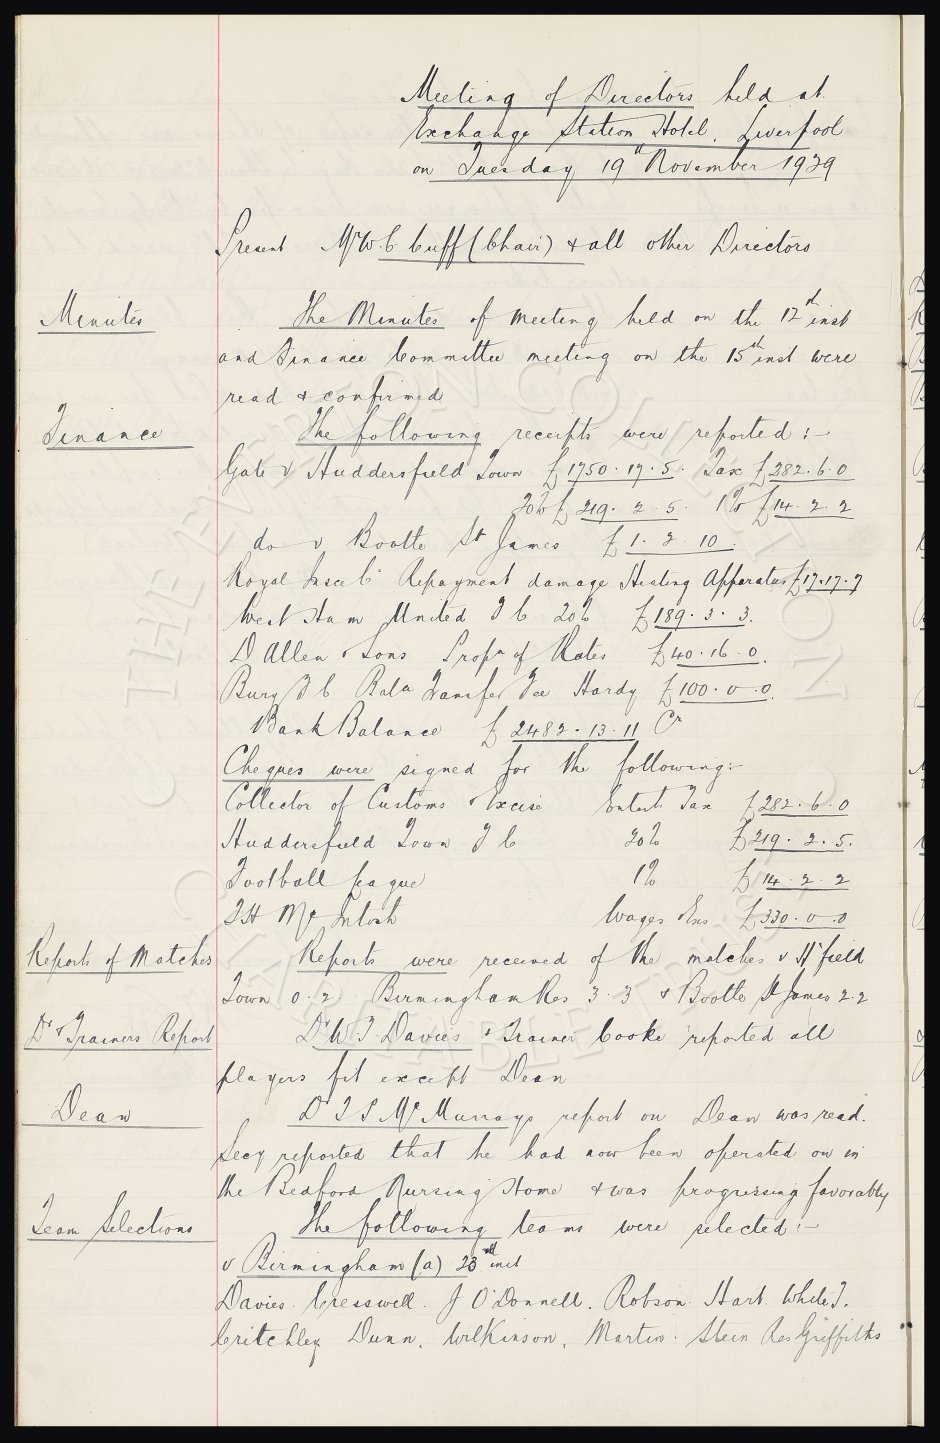 Meeting of Directors held at
Exchange Station Hotel. Liverpool
on Tuesday 19th November 1929
Present Mr W.C Cuff (Chair) & all other Directors
Minutes
The Minutes of meeting held on the 12th inst
and Finance Committee meeting on the 15th inst were
read & confirmed
Finance
The following receipts were reported :-
Gate v Huddersfield Town £1750.17.5. Tax £282.6.0
20% £219.2.5. 1% £14.2.2
do v Bootle St James £1.2.10.
Royal Insce Co Repayment damage Heating Apparatus £17.17.7
West Ham United F C 20% £189.3.3.
D Allen & Sons Propn of Rates £40.16.0.
Bury F C Balce Transfer Fee Hardy £100.0.0.
Bank Balance £2482.13.11 Cr
Cheques were signed for the following:-
Collector of Customs & Excise Entert Tax £282.6.0
Huddersfield Town F C 20% £219.2.5.
Football League 1% £14.2.2
T H McIntosh Wages & Exs £330.0.0
Reports of Matches
Reports were received of the matches v H'field
Town 0.2 Birmingham Res 3.3 & Bootle St James 2.2
Dr & Trainers Report
Dr W.J. Davies & Trainer Cooke reported all
players fit except Dean
Dean
Dr T P McMurrays report on Dean was read.
Secy reported that he had now been operated on in
the Bedford Nursing Home & was progressing favorably
Team Selections
The following teams were selected :-
v Birmingham (a) 23rd inst
Davies. Cresswell. J O'Donnell. Robson. Hart. White T.
Critchley Dunn. Wilkinson. Martin. Stein Res Griffiths
THE EVERTON COLLECTION
CHARITABLE TRUST